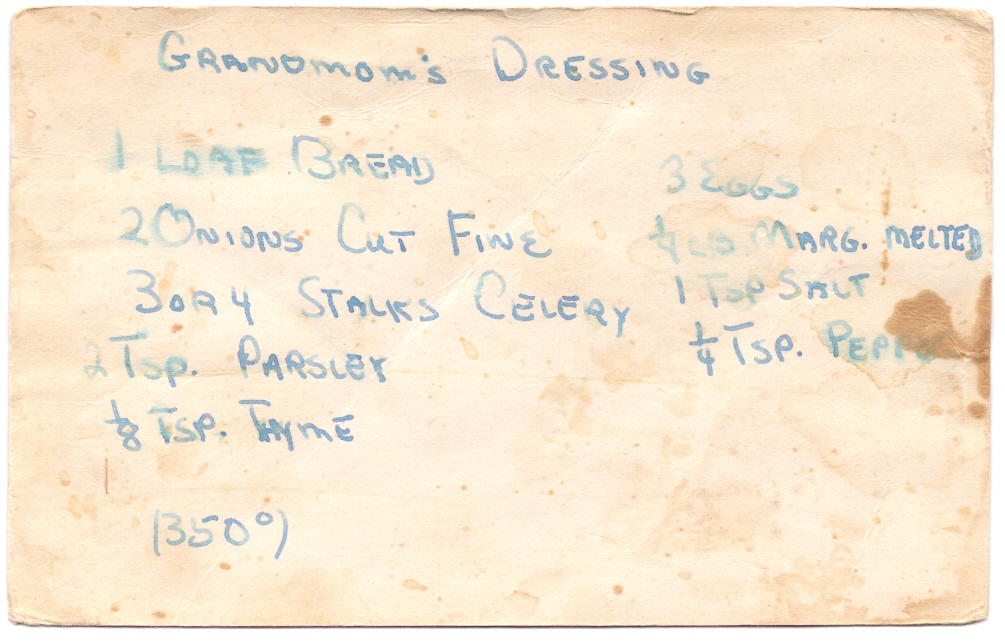 GRANDMOM'S DRESSING
1 LOAF BREAD
2 ONIONS CUT FINE
3 OR 4 STALKS CELERY
2 TSP. PARSLEY
1/8 TSP. THYME
(350°)
3 EGGS
1/4 LB. MARG. MELTED
1 TSP SALT
1/4 TSP. PEPPER